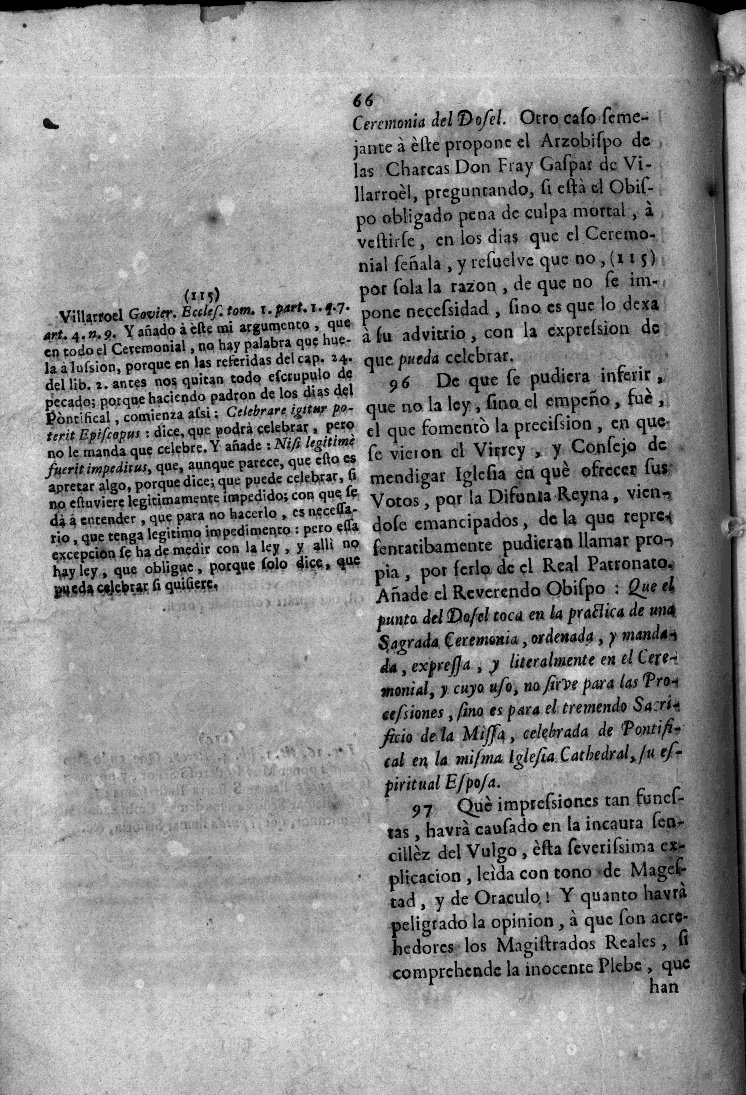 66
Ceremonia del Dosel. Otro caſo ſeme-
jante à èſte propone el Arzobiſpo de
las Charcas Don Fray Gaſpar de Vi-
llarroèl, preguntando, ſi eſtà el Obiſ-
po obligado pena de culpa mortal, à
veſtirſe, en los dias que el Ceremo-
nial ſeñala, y reſuelve que no, (115)
por ſola la razon, de que no ſe im-
pone neceſsidad, ſino es que lo dexa
à ſu advitrio, con la expreſsion de
que pueda celebrar.
96 De que ſe pudiera inferir,
que no la ley, ſino el empeño, fuè,
el que fomentò la preciſsion, en que
ſe vieron el Virrey, y Conſejo de
mendigar Igleſia en què ofrecer ſus
Votos, por la Difunta Reyna, vien-
doſe emancipados, de la que repre-
ſentatibamente pudieran llamar pro-
pia, por ſerlo de el Real Patronato.
Añade el Reverendo Obiſpo: Que el
punto del Doſel toca en la practica de una
Sagrada Ceremonia, ordenada, y manda-
da, expreſſa, y literalmente en el Cere-
monial, y cuyo uſo, no ſirve para las Pro-
ceſsiones, ſino es para el tremendo Sacri-
ficio de la Miſſa, celebrada de Pontifi-
cal en la miſma Igleſia Cathedral, ſu eſ-
piritual Eſpoſa.
97 Què impreſsiones tan funeſ-
tas, havrà cauſado en la incauta ſen-
cillèz del Vulgo, èſta ſeveriſsima ex-
plicacion, leìda con tono de Mageſ-
tad, y de Oraculo! Y quanto havrà
peligrado la opinion, à que ſon acre-
hedores los Magiſtrados Reales, ſi
comprehende la inocente Plebe, que
han
(115)
Villarroel Govier. Eccleſ. tom. 1. part. 1. q. 7.
art. 4. n. 9. Y añado à èſte mi argumento, que
en todo el Ceremonial, no hay palabra que hue-
la à luſsion, porque en las referidas del cap. 24.
del lib. 2. antes nos quitan todo eſcrupulo de
pecado; porque haciendo padron de los dias del
Pontifical, comienza aſsi: Celebrare igitur po-
terit Epiſcopus: dice, que podrà celebrar, pero
no le manda que celebre. Y añade: Niſi legitimè
fuerit impeditus, que, aunque parece, que eſto es
apretar algo, porque dice; que puede celebrar, ſi
no eſtuviere legitimamente impedido; con que ſe
dà à entender, que para no hacerlo, es neceſſa-
rio, que tenga legitimo impedimento: pero eſſa
excepcion ſe ha de medir con la ley, y alli no
hay ley, que obligue, porque ſolo dice, que
pueda celebrar ſi quiſiere.